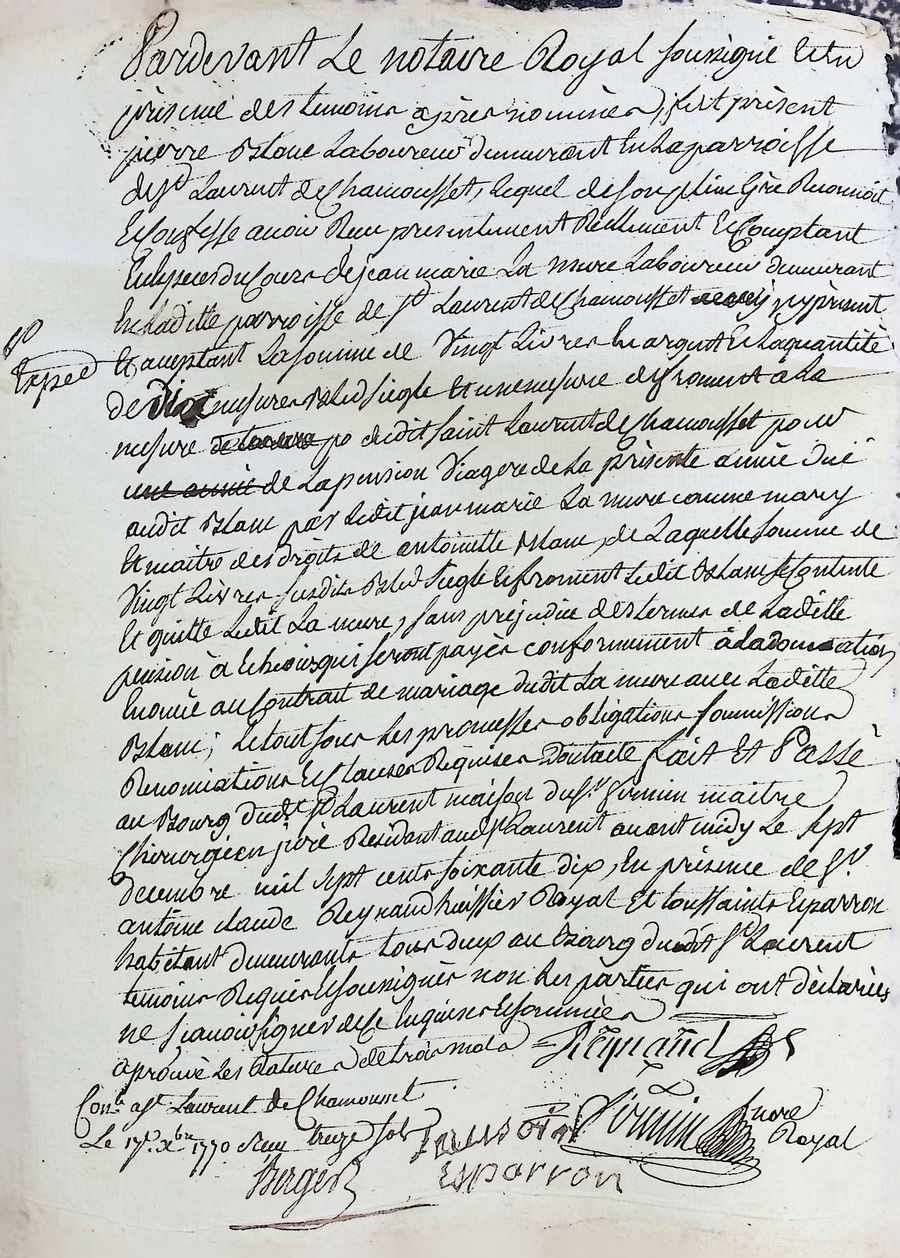 Pardevant Le notaire Royal soussigné et en
présence des temoins après nommés, fut présent
pierre Blanc Laboureur demeurant En La parroisse
de St Laurent de Chamousset, lequel de son plein Gré Reconnoit
Et Confesse avoir Reçu presentement Réellement Et Comptant
En Especes du Cours de jean marie La mure Laboureur demeurant
En Laditte parroisse de St Laurent de Chamousset icy présent
Et acceptant La somme de Vingt Livres En argent Et La quantité
De Dix mesures Bled siegle Et une mesure de froment à La
mesure dudit saint Laurent de Chamousset pour
une année de La pension Viagere de La présente année Düe
audit Blanc par Ledit jean marie La mure comme mary
Et maitre des droits de antoinette Blanc, de Laquelle somme de
Vingt Livres susdits Bled siegle Et froment Ledit Blanc se Contente
Et quitte Ledit La mure, sans préjudice des termes de Laditte
pension à Echeoir qui seront payés conformement à La donnation
Enoncée au Contrait de mariage dudit La mure avec Laditte
Blanc; Le tout sous Les promesses obligations soumissions
Renonciations Et Clauses Requises Dont acte fait Et Passé
au Bourg dudt St Laurent maison du Sr. firmin maitre
Chirurgien juré Residant audt St Laurent avant midy Le sept
decembre mil sept cents soixante dix, En présence de Sr.
antoine claude Reynaud huissier Royal Et toussaints Esparron
habitant demeurants tous deux au Bourg dudit St Laurent
temoins Requis Et soussignés non Les parties qui ont déclarées
ne sçavoir signer de ce Enquises Et sommées
aprouvé Les Rature de trois mots
Reynaud
Exped
Conlé a St. Laurent de Chamousset
Le 17e. Xbre 1770 Reçu treize sols
Berger
toussaint
Esparron
firmin
Nore
Royal